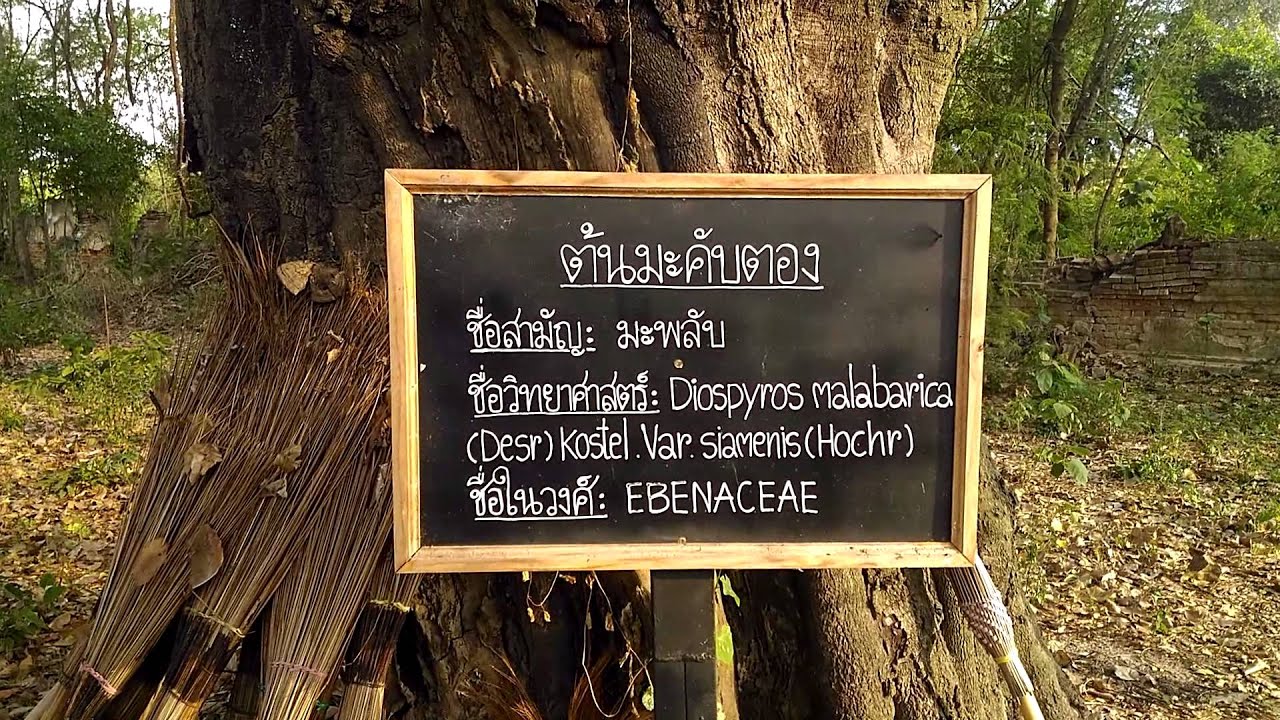 ต้นมะคับตอง
ชื่อสามัญ: มะพลับ
ชื่อวิทยาศาสตร์: Diospyros malabarica
(Desr) Kostel. Var. siamenis (Hochr)
ชื่อในวงศ์: EBENACEAE